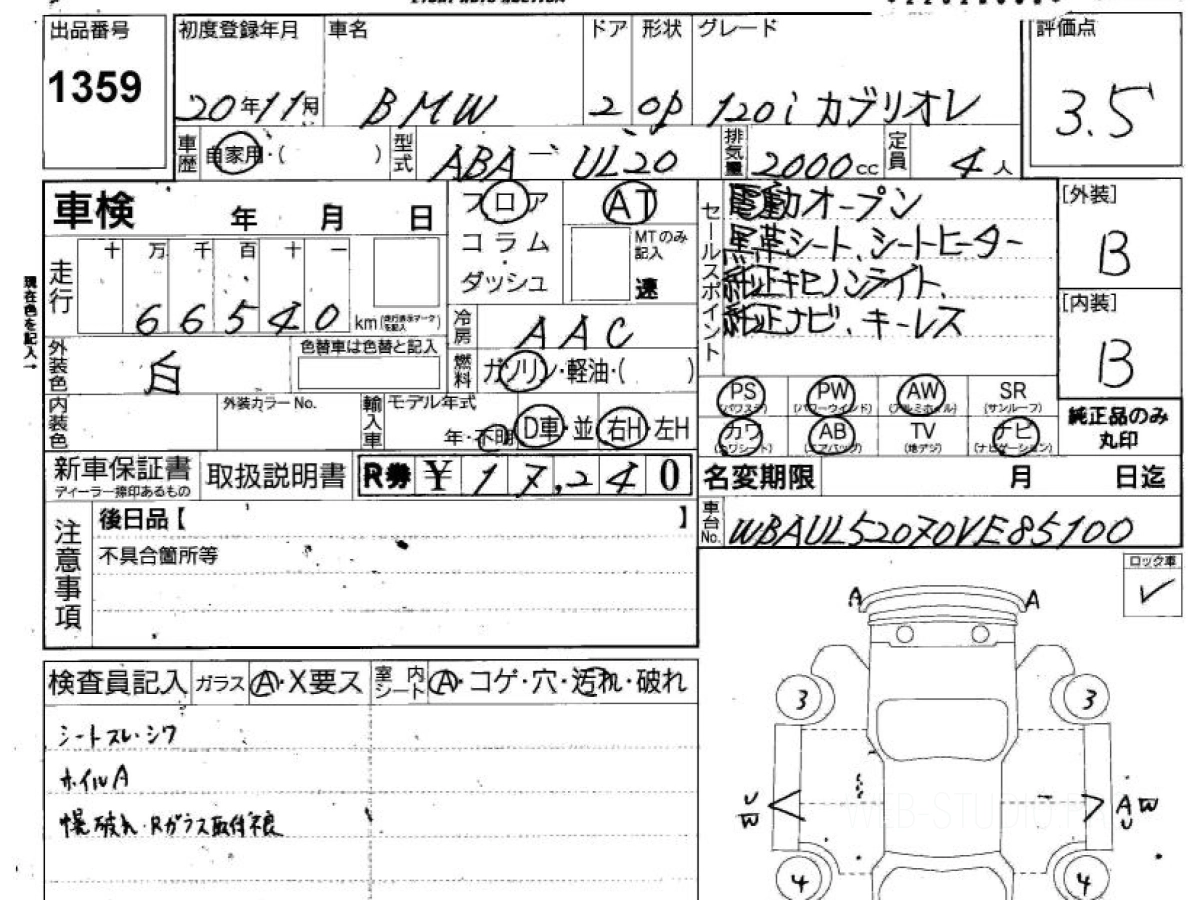 出品番号 初度登録年月 車名 ドア 形状 グレード 評価点
1359 20年11月 BMW 2 OP 120i カブリオレ 3.5
車歴 自家用・( ) 型式 ABA-UL20 排気量 2000cc 定員 4人
車検 年 月 日
フロア
コラム
・
ダッシュ
AT
MTのみ記入
速
セールスポイント
電動オープン
黒革シート、シートヒーター
純正キセノンライト、
純正ナビ、キーレス
[外装]
B
[内装]
B
現在色を記入→
走行 十 万 千 百 十 一
66540 km(走行表示マークを記入)
冷房 AAC
外装色 白 色替車は色替と記入
燃料 ガソリン・軽油・( )
内装色 外装カラーNo. 輸入車 モデル年式
年・不明 D車・並 右H・左H
PS PW AW SR
(パワステ) (パワーウインド) (アルミホイル) (サンルーフ)
カワ AB TV ナビ
(カワシート) (エアバッグ) (地デジ) (ナビゲーション)
純正品のみ
丸印
新車保証書 取扱説明書 R券 ¥17,240
ディーラー捺印あるもの
名変期限 月 日迄
車台No. WBAUL52070VE85100
注意事項
後日品【 】
不具合箇所等
ロック車
✓
検査員記入 ガラス A・X要ス 室内シート A・コゲ・穴・汚れ・破れ
シートスレ・シワ
ホイルA
幌破れ・Rガラス取付不良
A A
3 3
U
W
A W
U
4 4
WEB-STUDIO.